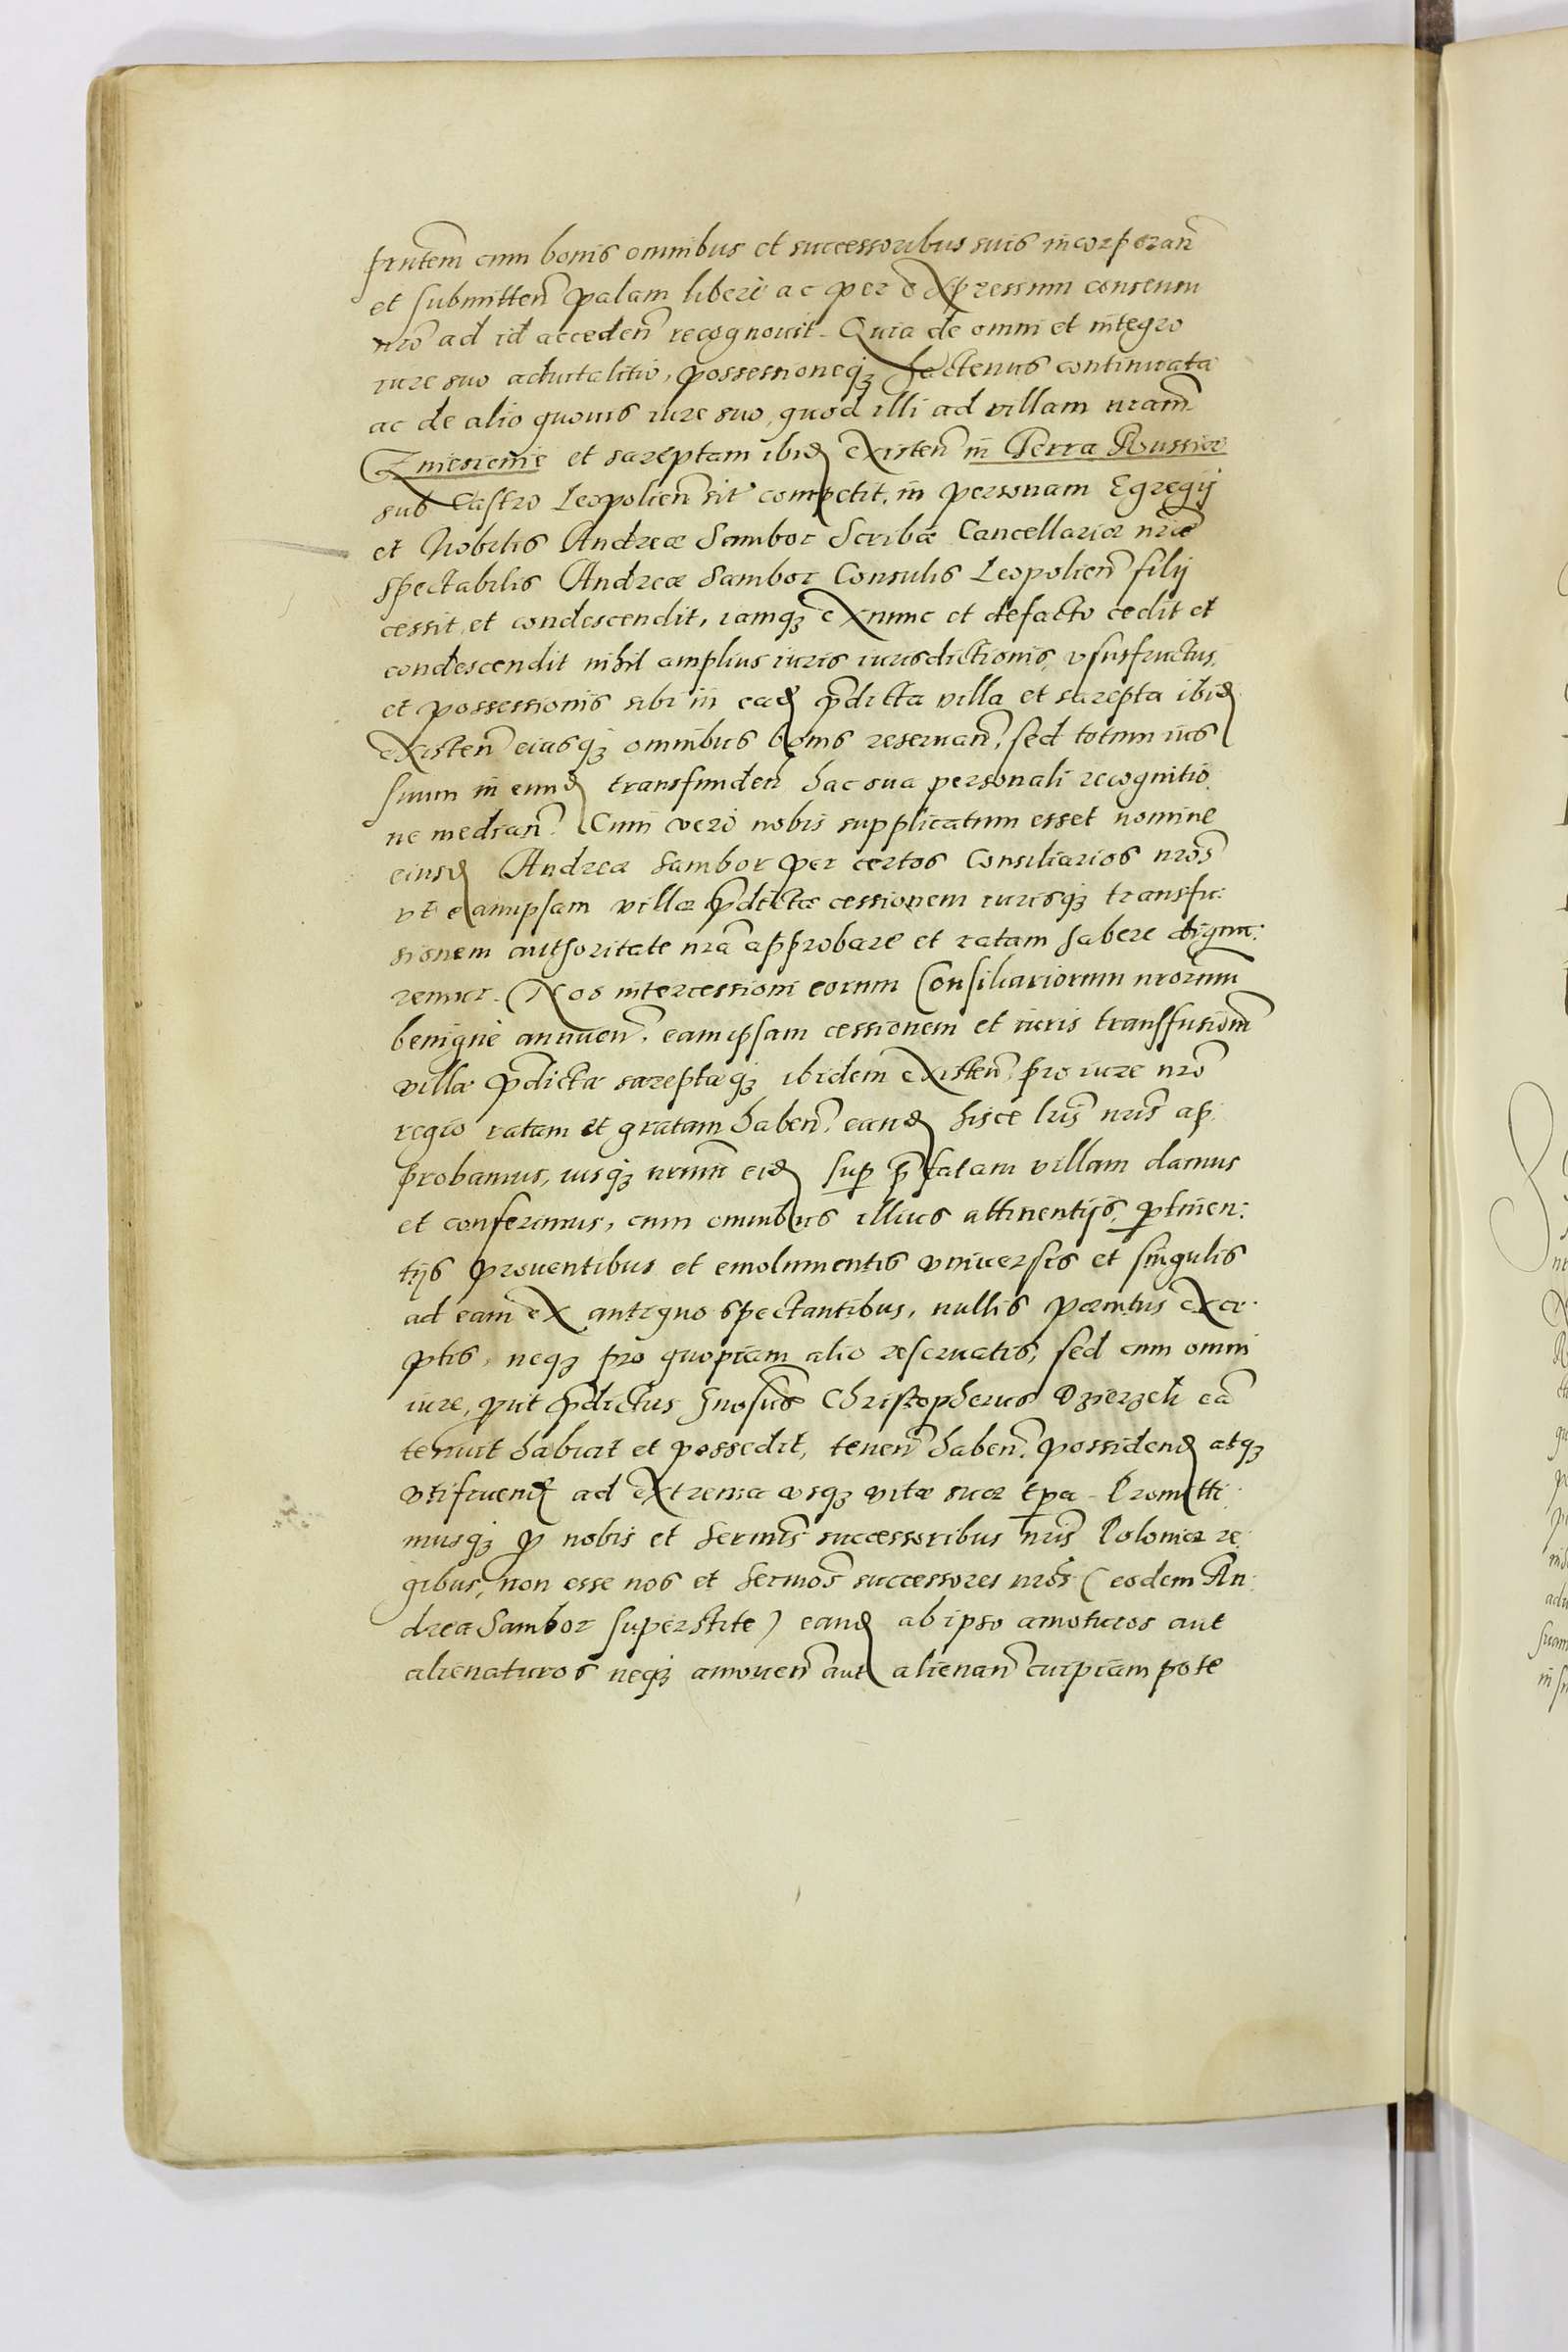 prñtem cum bonis omnibus et successoribus suis incorporañ
et submitteñ palam liberè ac per expressum consensu
nr̃o ad id accedeñ recognovit. Quia de omni et integro
iure suo advitalitio, possessioneqꝫ hactenus continuata
ac de alio quovis iure suo, quod illi ad villam nr̃am
Zniesienie et sareptam ibid existeñ in Terra Russiæ
sub Castro Leopolieñ sit competit, in personam Egregij
et Nobilis Andreæ Sambor Scribæ Cancellariæ nr̃æ
spectabilis Andreæ Sambor Consulis Leopolieñ filij
cessit et condescendit, iamqꝫ ex nunc et defacto cedit et
condescendit nihil amplius iuris iurisdictionis, vsusfructus,
et possessionis sibi in ead p̃dicta villa et sarepta ibid
existeñ eiusqꝫ omnibus bonis reservañ, sed totum ius
suum in eund transfundeñ hac sua personali recognitio.
ne mediañ. Cum verò nobis supplicatum esset nomine
eiusd Andreæ Sambor per certos Consiliarios nr̃os
vt eamipsam villæ p̃dictæ cessionem iurisqꝫ transfu:
sionem authoritate nr̃a approbare et ratam habere digna:
remur. Nos intercessioni eorum Consiliariorum nr̃orum
benignè annueñ, eamipsam cessionem et iuris transfusionẽ
villæ p̃dictæ sareptæqꝫ ibidem existeñ, pro iure nr̃o
regio ratam et gratam habeñ, eand hisce lr̃is nr̃is ap:
probamus, iusqꝫ nr̃um eid sup p̃fatam villam damus
et conferimus, cum omnibus illius attinentijs, ꝑtinen:
tijs proventibus et emolumentis vniversis et singulis
ad eam ex antiquo spectantibus, nullis pænitus exce:
ptis, neqꝫ pro quopiam alio reservatis, sed cum omni
iure, ꝓut p̃dictus Gnosus Christopherus Dzierzek eã
tenuit habuit et possedit, teneñ habeñ, possidend atqꝫ
vtifruend ad extrema vsqꝫ vitæ suæ tꝑa. Promitti:
musqꝫ ꝓ nobis et Sermis successoribus nr̃is Poloniæ re:
gibus, non esse nos et Sermos successores nr̃os (eodem An:
drea Sambor superstite) eand ab ipso amoturos aut
alienaturos neqꝫ amoveñ aut alienañ cuipiam pote